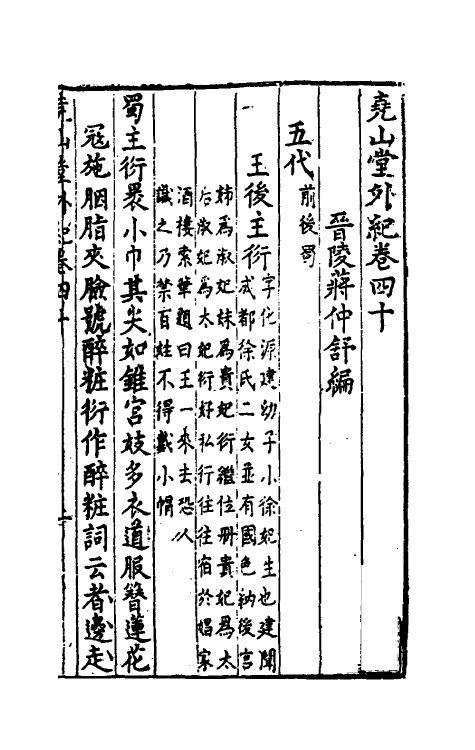 堯山堂外紀卷四十
晉陵蔣仲舒編
五代 前後蜀
王後主衍 字化源建幼子小徐妃生也建聞
成都徐氏二女並有國色納後宮
姊為淑妃妹為貴妃衍繼位冊貴妃為太
后淑妃為太妃衍好私行往往宿於娼家
酒樓索筆題曰王一來去恐人
識之乃禁百姓不得戴小帽
蜀主衍裹小巾其尖如錐宮妓多衣道服簪蓮花
冠施胭脂夾臉號醉粧衍作醉粧詞云者邊走
堯山堂外紀卷四十
一